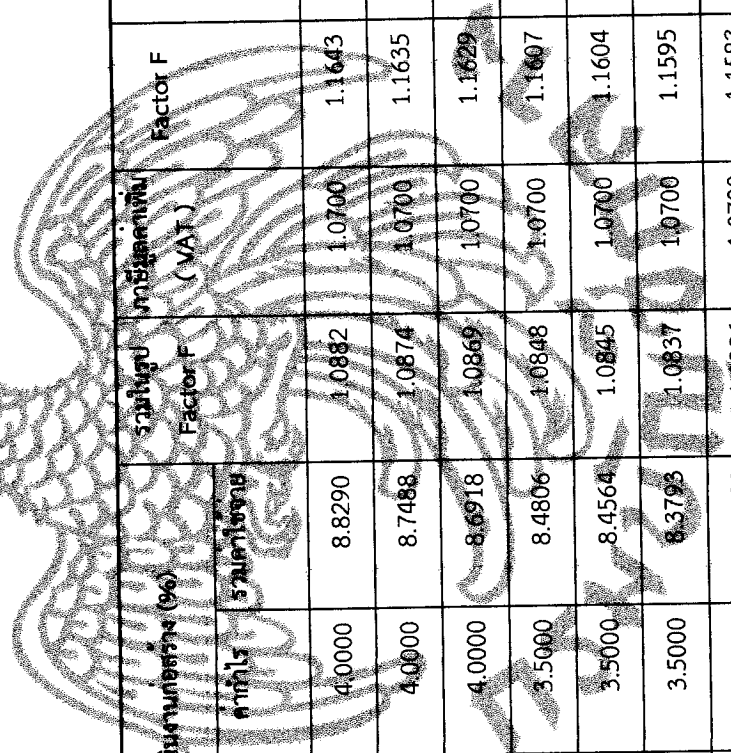 งานก่อสร้าง (%) รวมในรูป ภาษีมูลค่าเพิ่ม Factor F
Factor F ( VAT )
ค่ากำไร รวมค่าใช้จ่าย
4.0000 8.8290 1.0882 1.0700 1.1643
4.0000 8.7488 1.0874 1.0700 1.1635
4.0000 8.6918 1.0869 1.0700 1.1629
3.5000 8.4806 1.0848 1.0700 1.1607
3.5000 8.4564 1.0845 1.0700 1.1604
3.5000 8.3793 1.0837 1.0700 1.1595